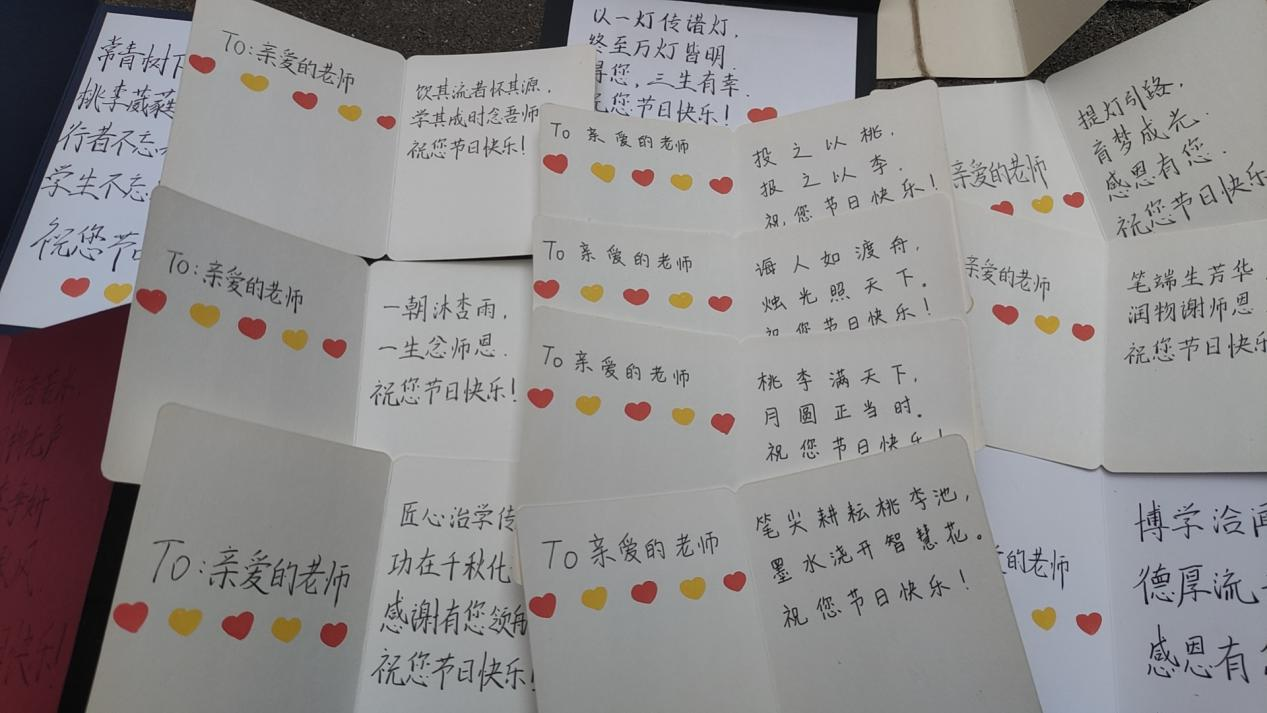 常青树下
桃李葳蕤
行者不忘
学生不忘
祝您节
To:亲爱的老师
饮其流者怀其源，
学其成时念吾师
祝您节日快乐！
以一灯传诸灯，
终至万灯皆明.
得您，三生有幸.
祝您节日快乐！
To 亲爱的老师
投之以桃，
报之以李.
祝您节日快乐！
亲爱的老师
提灯引路，
育梦成光.
感恩有您.
祝您节日快乐
To:亲爱的老师
一朝沐杏雨，
一生念师恩.
祝您节日快乐！
To 亲爱的老师
诲人如渡舟，
烛光照天下。
祝您节日快乐！
亲爱的老师
笔端生芳华
润物谢师恩
祝您节日快乐
To 亲爱的老师
桃李满天下，
月圆正当时。
祝您节日快乐！
To:亲爱的老师
匠心治学传
功在千秋化
感谢有您领航
祝您节日快乐！
To 亲爱的老师
笔尖耕耘桃李池，
墨水浇开智慧花。
祝您节日快乐！
的老师
博学洽闻
德厚流
感恩有